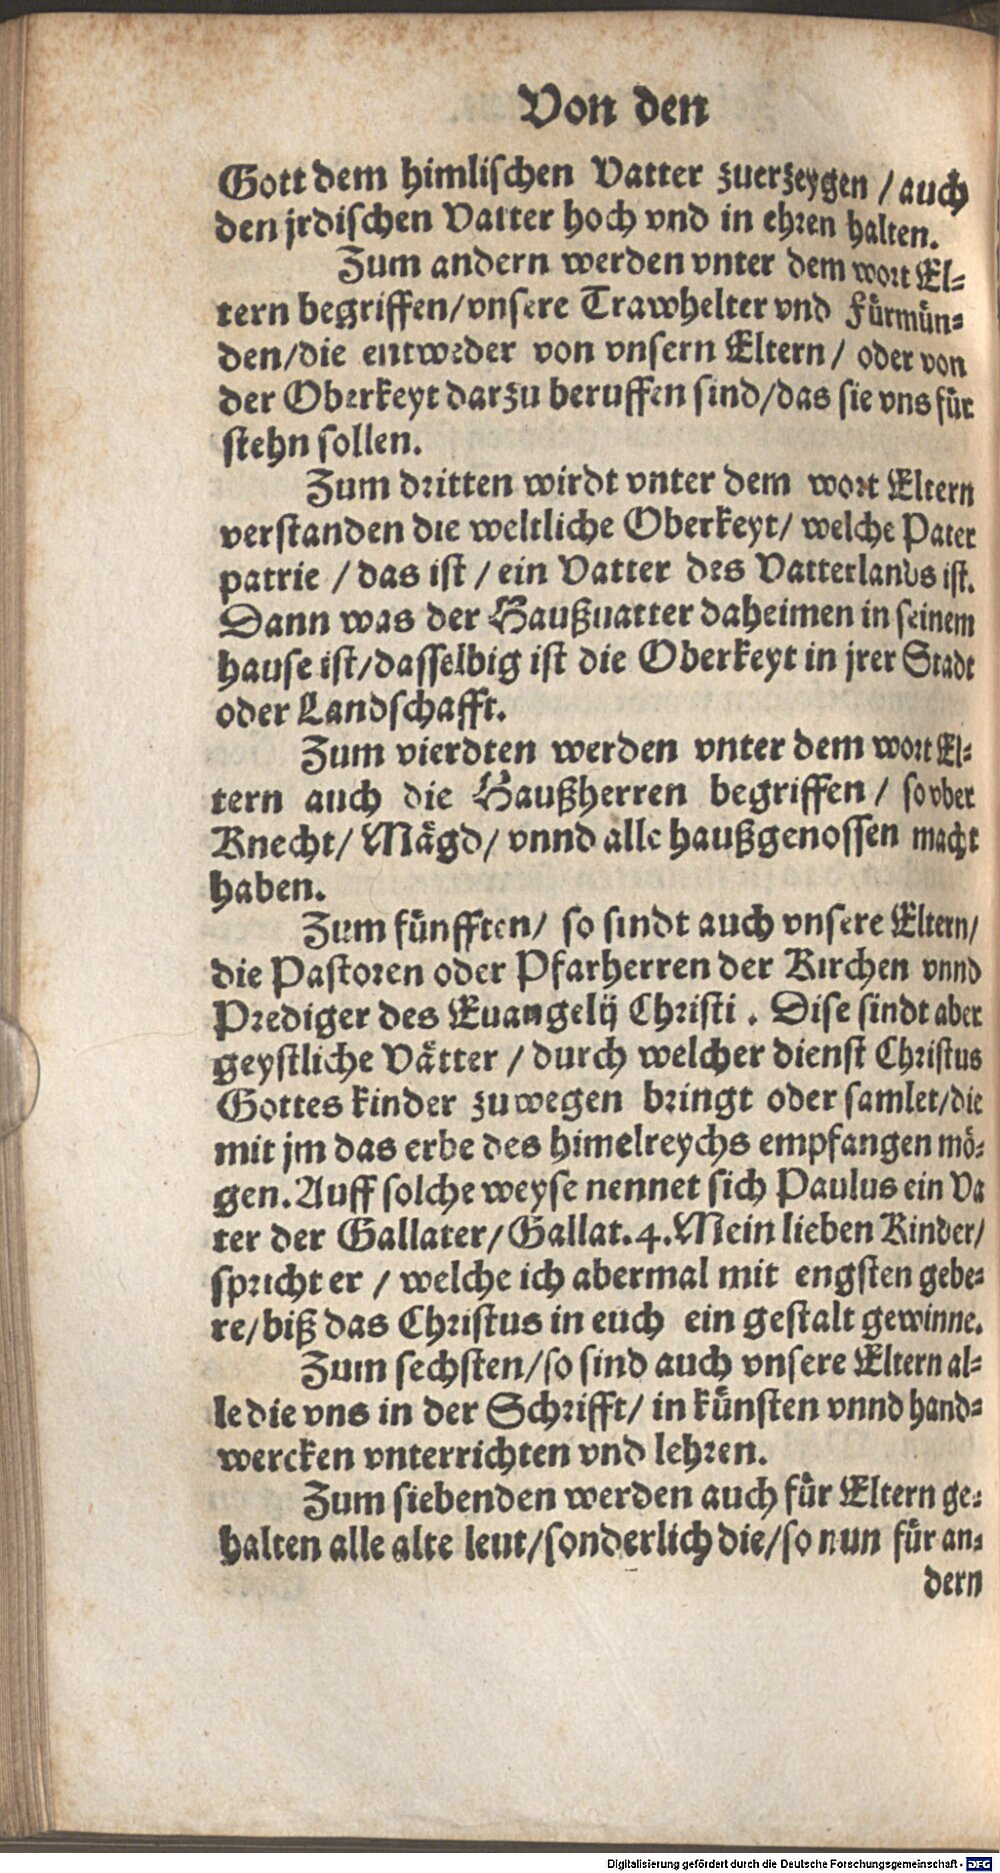 Von den
Gott dem himlischen Vatter zuerzeygen / auch
den jrdischen Vatter hoch vnd in ehren halten.
Zum andern werden vnter dem wort El-
tern begriffen/vnsere Trawhelter vnd Fürmün-
den/die entweder von vnsern Eltern/ oder von
der Oberkeyt darzu beruffen sind/das sie vns für
stehn sollen.
Zum dritten wirdt vnter dem wort Eltern
verstanden die weltliche Oberkeyt/ welche Pater
patrie / das ist / ein Vatter des Vatterlands ist.
Dann was der Haußuatter daheimen in seinem
hause ist/dasselbig ist die Oberkeyt in jrer Stadt
oder Landschafft.
Zum vierdten werden vnter dem wort El-
tern auch die Haußherren begriffen / so vber
Knecht/ Mägd/ vnnd alle haußgenossen macht
haben.
Zum fünfften/ so sindt auch vnsere Eltern/
die Pastoren oder Pfarherren der Kirchen vnnd
Prediger des Euangelij Christi . Dise sindt aber
geystliche Vätter / durch welcher dienst Christus
Gottes kinder zuwegen bringt oder samlet/die
mit jm das erbe des himelreychs empfangen mö-
gen. Auff solche weyse nennet sich Paulus ein Va
ter der Gallater/Gallat.4. Mein lieben Kinder/
spricht er / welche ich abermal mit engsten gebe-
re/biß das Christus in euch ein gestalt gewinne.
Zum sechsten/so sind auch vnsere Eltern al-
le die vns in der Schrifft/ in künsten vnnd hand-
wercken vnterrichten vnd lehren.
Zum siebenden werden auch für Eltern ge-
halten alle alte leut/sonderlich die/so nun für an-
dern
Digitalisierung gefördert durch die Deutsche Forschungsgemeinschaft - DFG